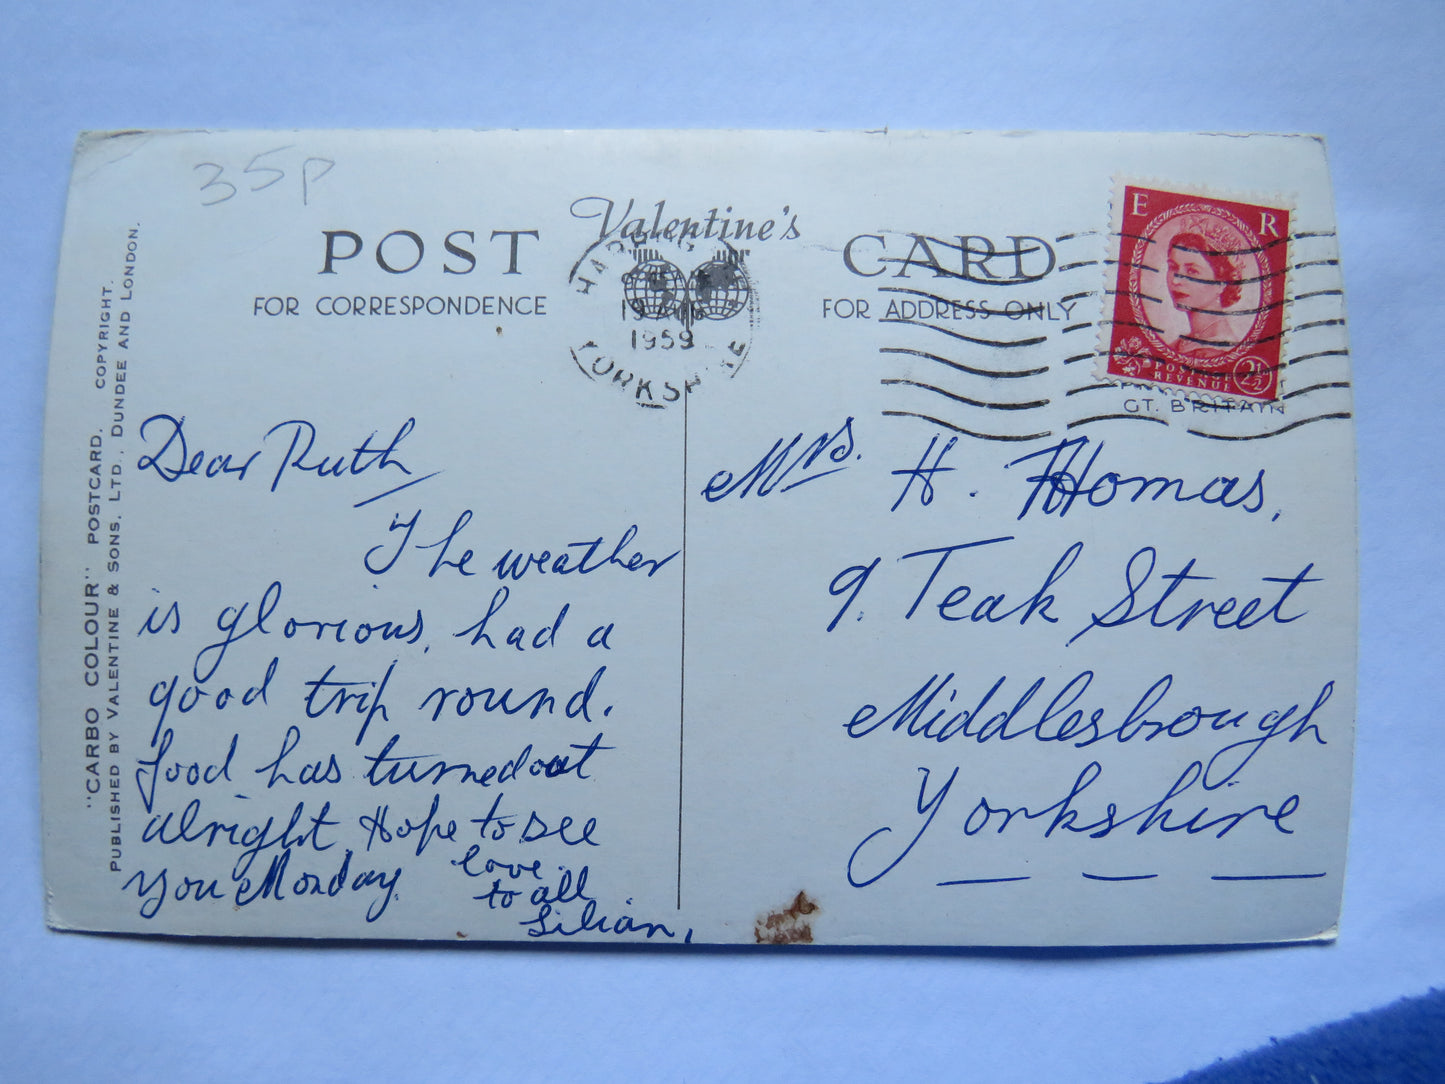 35p
POST Valentine's CARD
FOR CORRESPONDENCE
FOR ADDRESS ONLY
19 AUG
1959
YORKSHIRE
E R
POSTAGE
REVENUE
2½
GT. BRITAIN
"CARBO COLOUR" POSTCARD. COPYRIGHT.
PUBLISHED BY VALENTINE & SONS, LTD., DUNDEE AND LONDON.
Dear Ruth
The weather
is glorious, had a
good trip round.
food has turned out
alright. Hope to see
you Monday.
love
to all
Lilian,
Mrs. H. Thomas,
9. Teak Street
Middlesbrough
Yorkshire